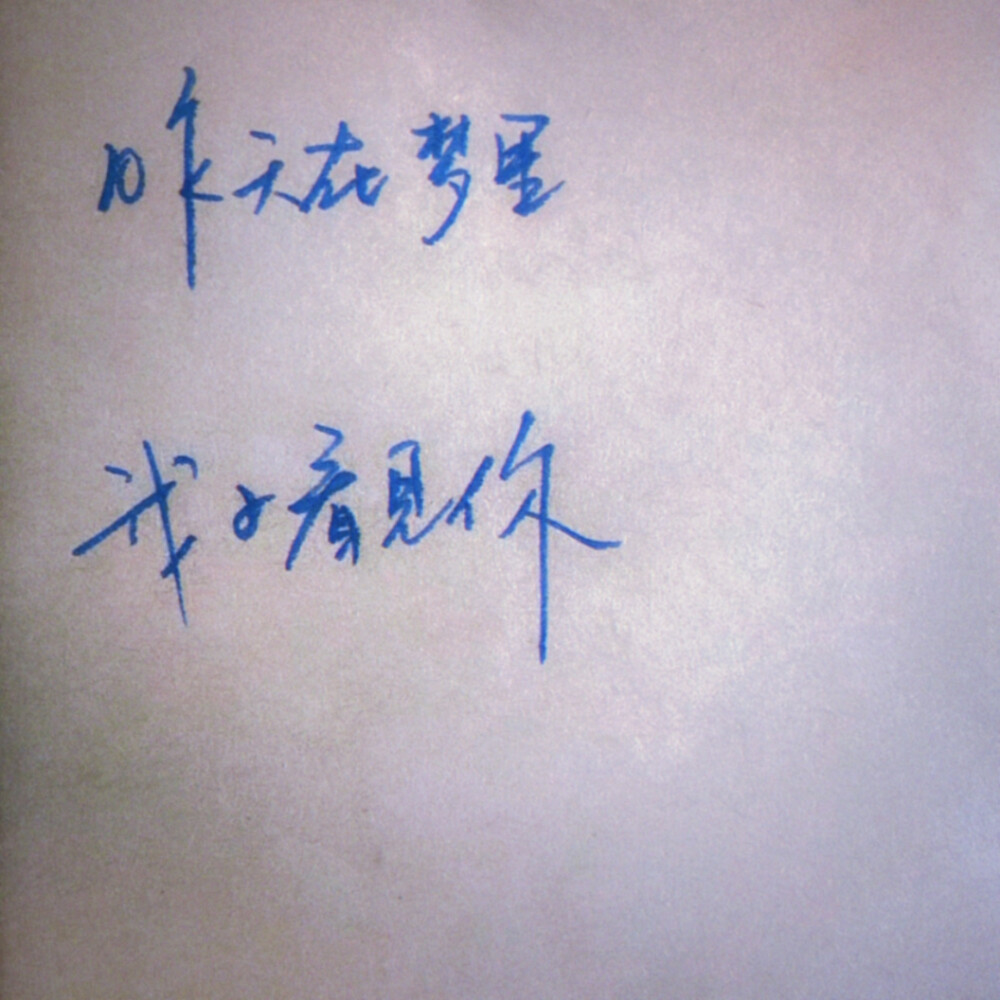 昨天在梦里
我又看见你